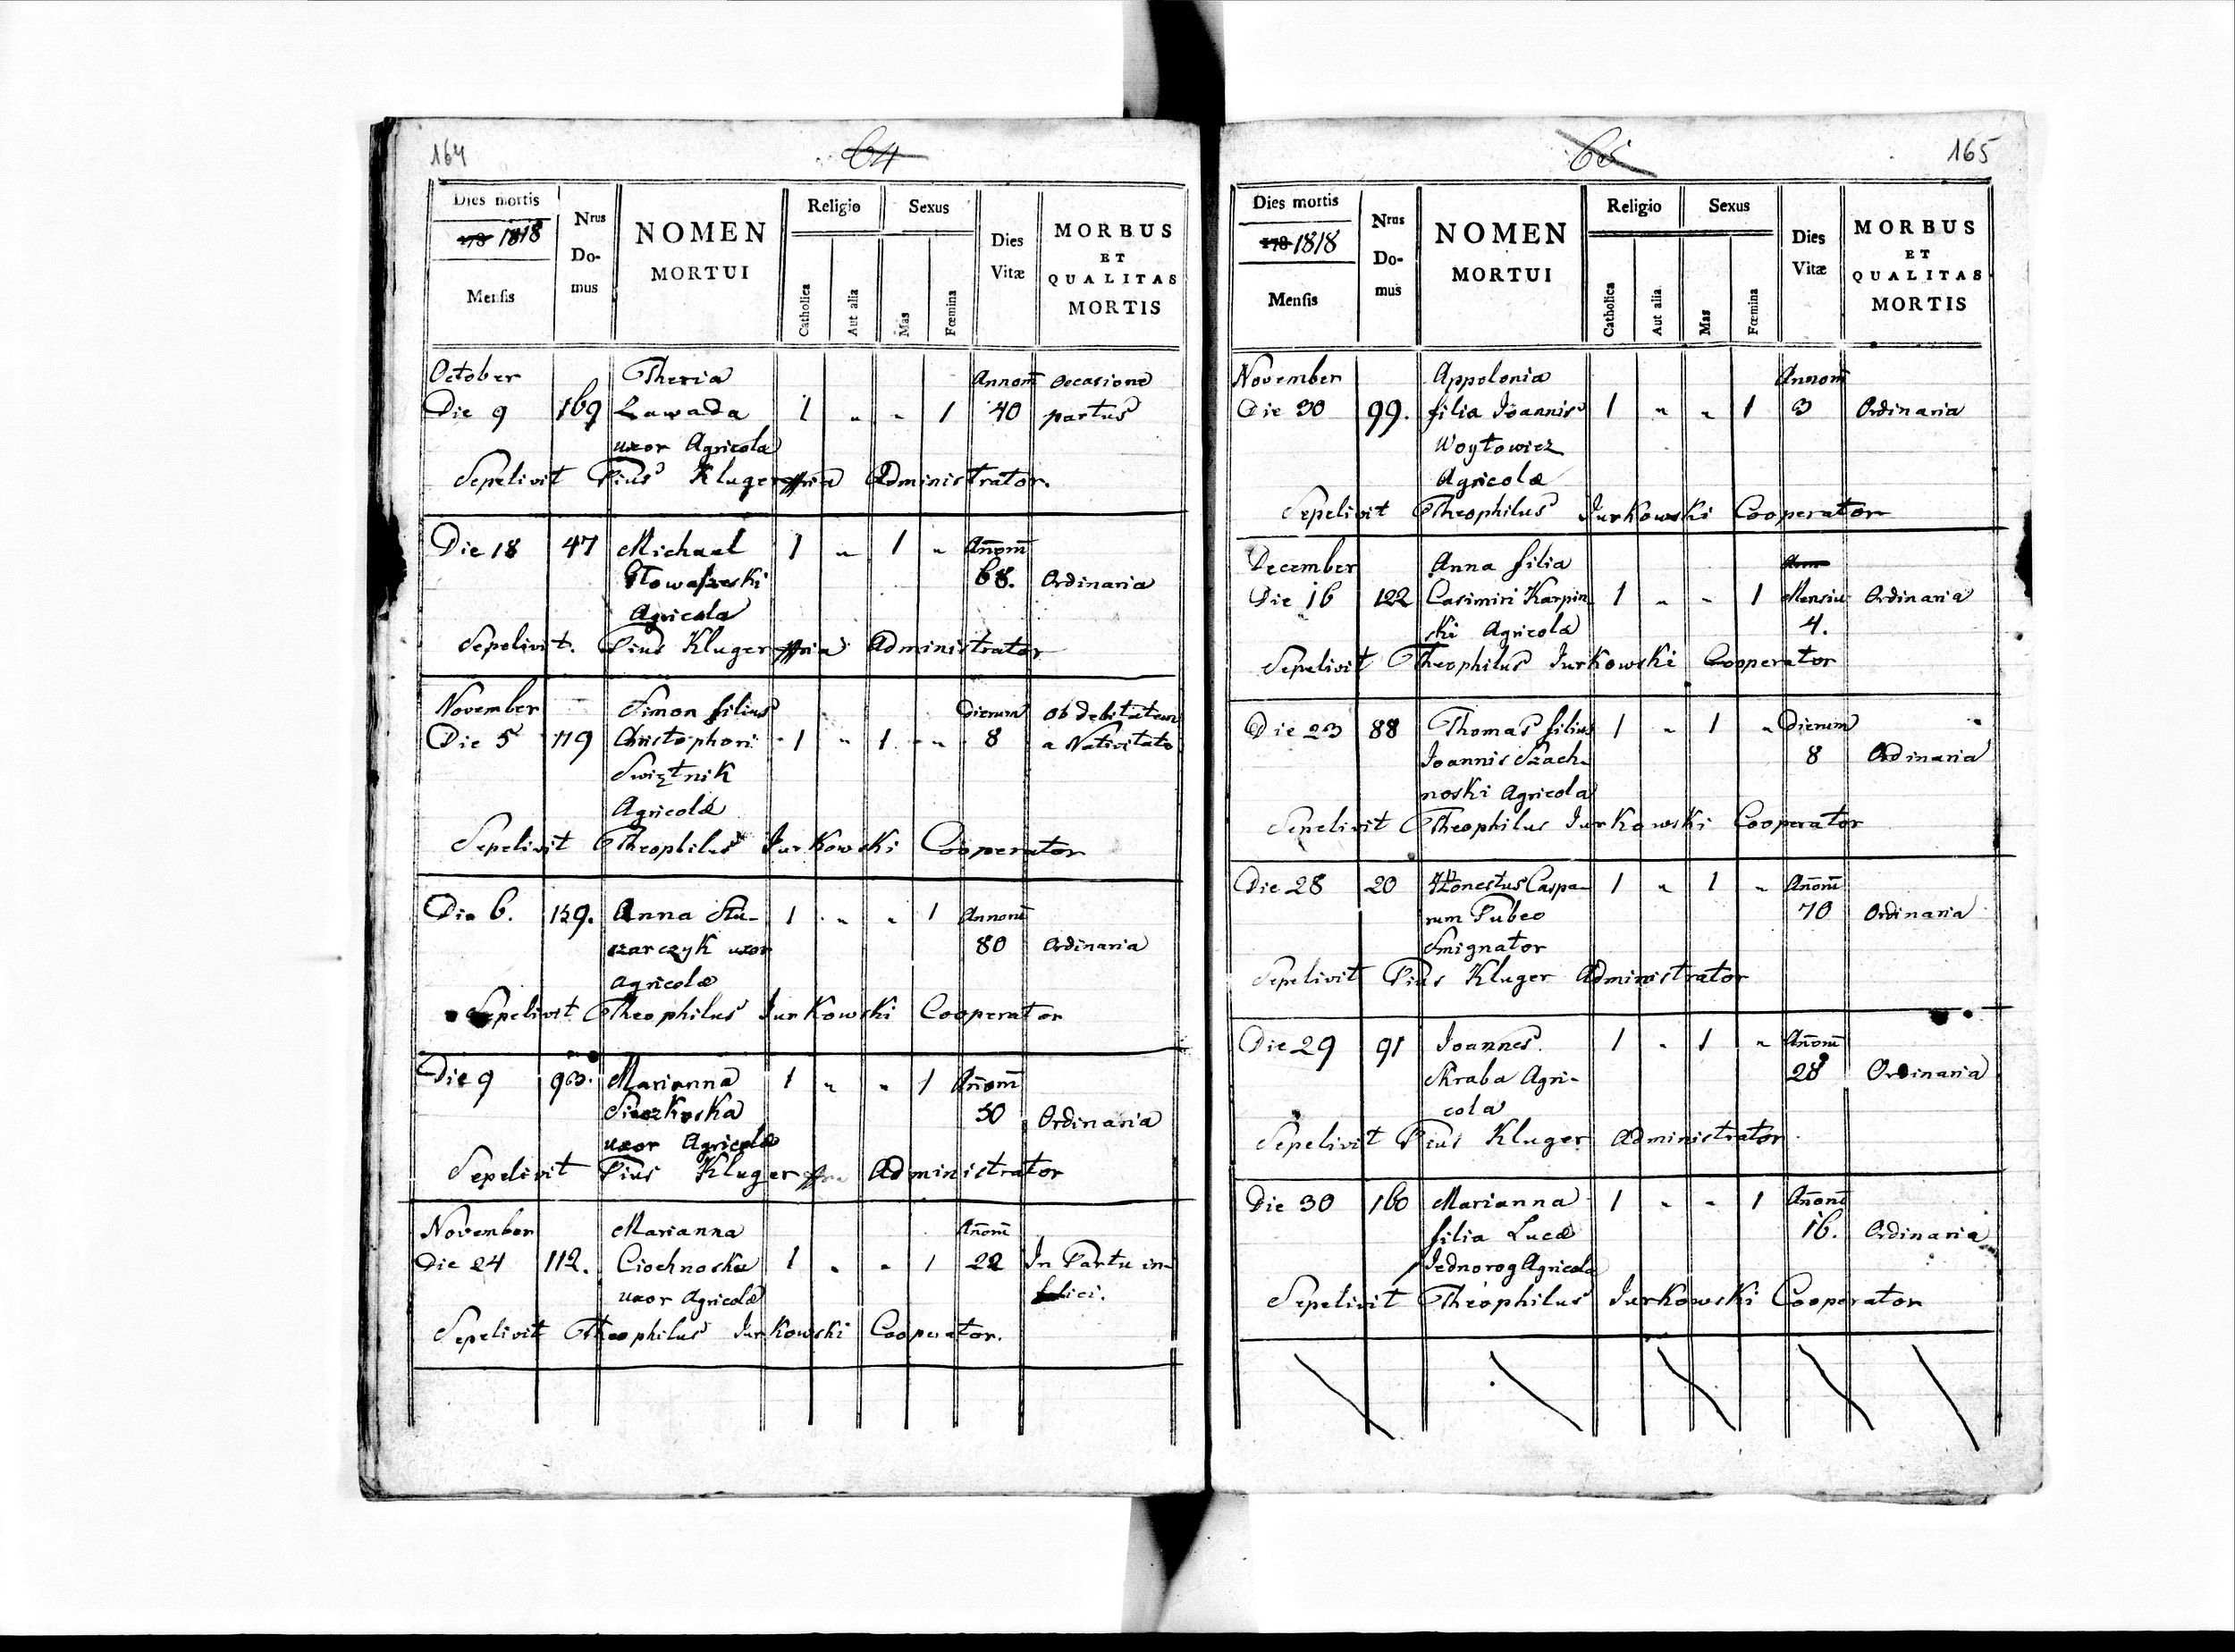 164
64
Dies mortis
178 1818
Mensis
Nrus
Do-
mus
NOMEN
MORTUI
Religio
Catholica
Aut alia
Sexus
Mas
Fœmina
Dies
Vitæ
MORBUS
ET
QUALITAS
MORTIS
October Theria Annom̄ occasione
Die 9 169 Lawada 1 " " 1 40 partus
uxor Agricola
Sepelivit Pius Kluger Administrator.
Die 18 47 Michael 1 " 1 " An̄om̄
68. Ordinaria
Agricola
Sepelivit. Pius Kluger Administrator
November Simon filius Dierum ob debitatem
Die 5 119 Christophori 1 " 1 " 8 a Nativitate
Swiętnik
Agricolæ
Sepelivit Theophilus Jurkowski Cooperator
Die 6. 159. Anna Stu- 1 " " 1 Annom̄
czarczyk uxor 80 Ordinaria
agricolæ
Sepelivit Theophilus Jurkowski Cooperator
Die 9 93. Marianna 1 " " 1 An̄om̄
50 Ordinaria
uxor Agricolæ
Sepelivit Pius Kluger Administrator
November Marianna An̄om̄
Die 24 112. Ciochnoska 1 " " 1 22 In Partu in-
uxor Agricolæ felici.
Sepelivit Theophilus Jurkowski Cooperator.
65
165
Dies mortis
178 1818
Mensis
Nrus
Do-
mus
NOMEN
MORTUI
Religio
Catholica
Aut alia
Sexus
Mas
Fœmina
Dies
Vitæ
MORBUS
ET
QUALITAS
MORTIS
November Appolonia Annom̄
Die 30 99. filia Joannis 1 " " 1 3 Ordinaria
Woytowicz
Agricolæ
Sepelivit Theophilus Jurkowski Cooperator
December Anna filia
Die 16 122 Casimiri Karpin- 1 " " 1 Mensiu Ordinaria
ski Agricola 4.
Sepelivit Theophilus Jurkowski Cooperator
Die 23 88 Thomas filius 1 " 1 " Dierum
Joannis Szach- 8 Ordinaria
noski Agricola
Sepelivit Theophilus Jurkowski Cooperator
Die 28 20 Honestus Caspa- 1 " 1 " An̄om̄
rum Pubeo 70 Ordinaria
Smignator
Sepelivit Pius Kluger Administrator
Die 29 91 Joannes 1 " 1 " An̄om̄
Skraba Agri- 28 Ordinaria
cola
Sepelivit Pius Kluger Administrator
Die 30 160 Marianna 1 " " 1 An̄om̄
filia Lucæ 16. Ordinaria
Jednorog Agricola
Sepelivit Theophilus Jurkowski Cooperator